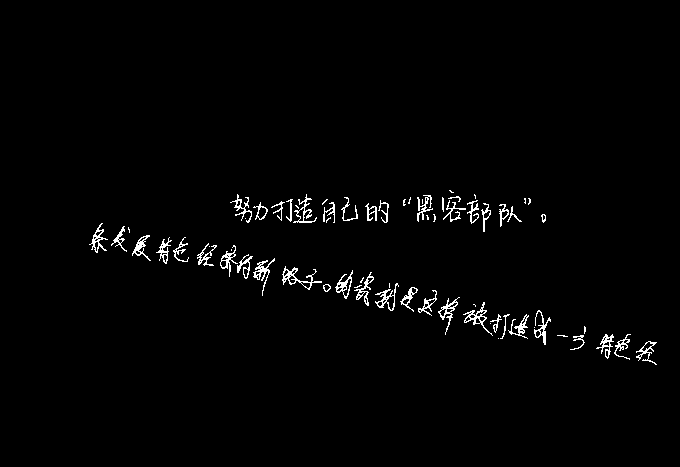 努力打造自己的“黑客部队”。
条发展特色经济的新路子。的资料是这样被打造成一个特色经